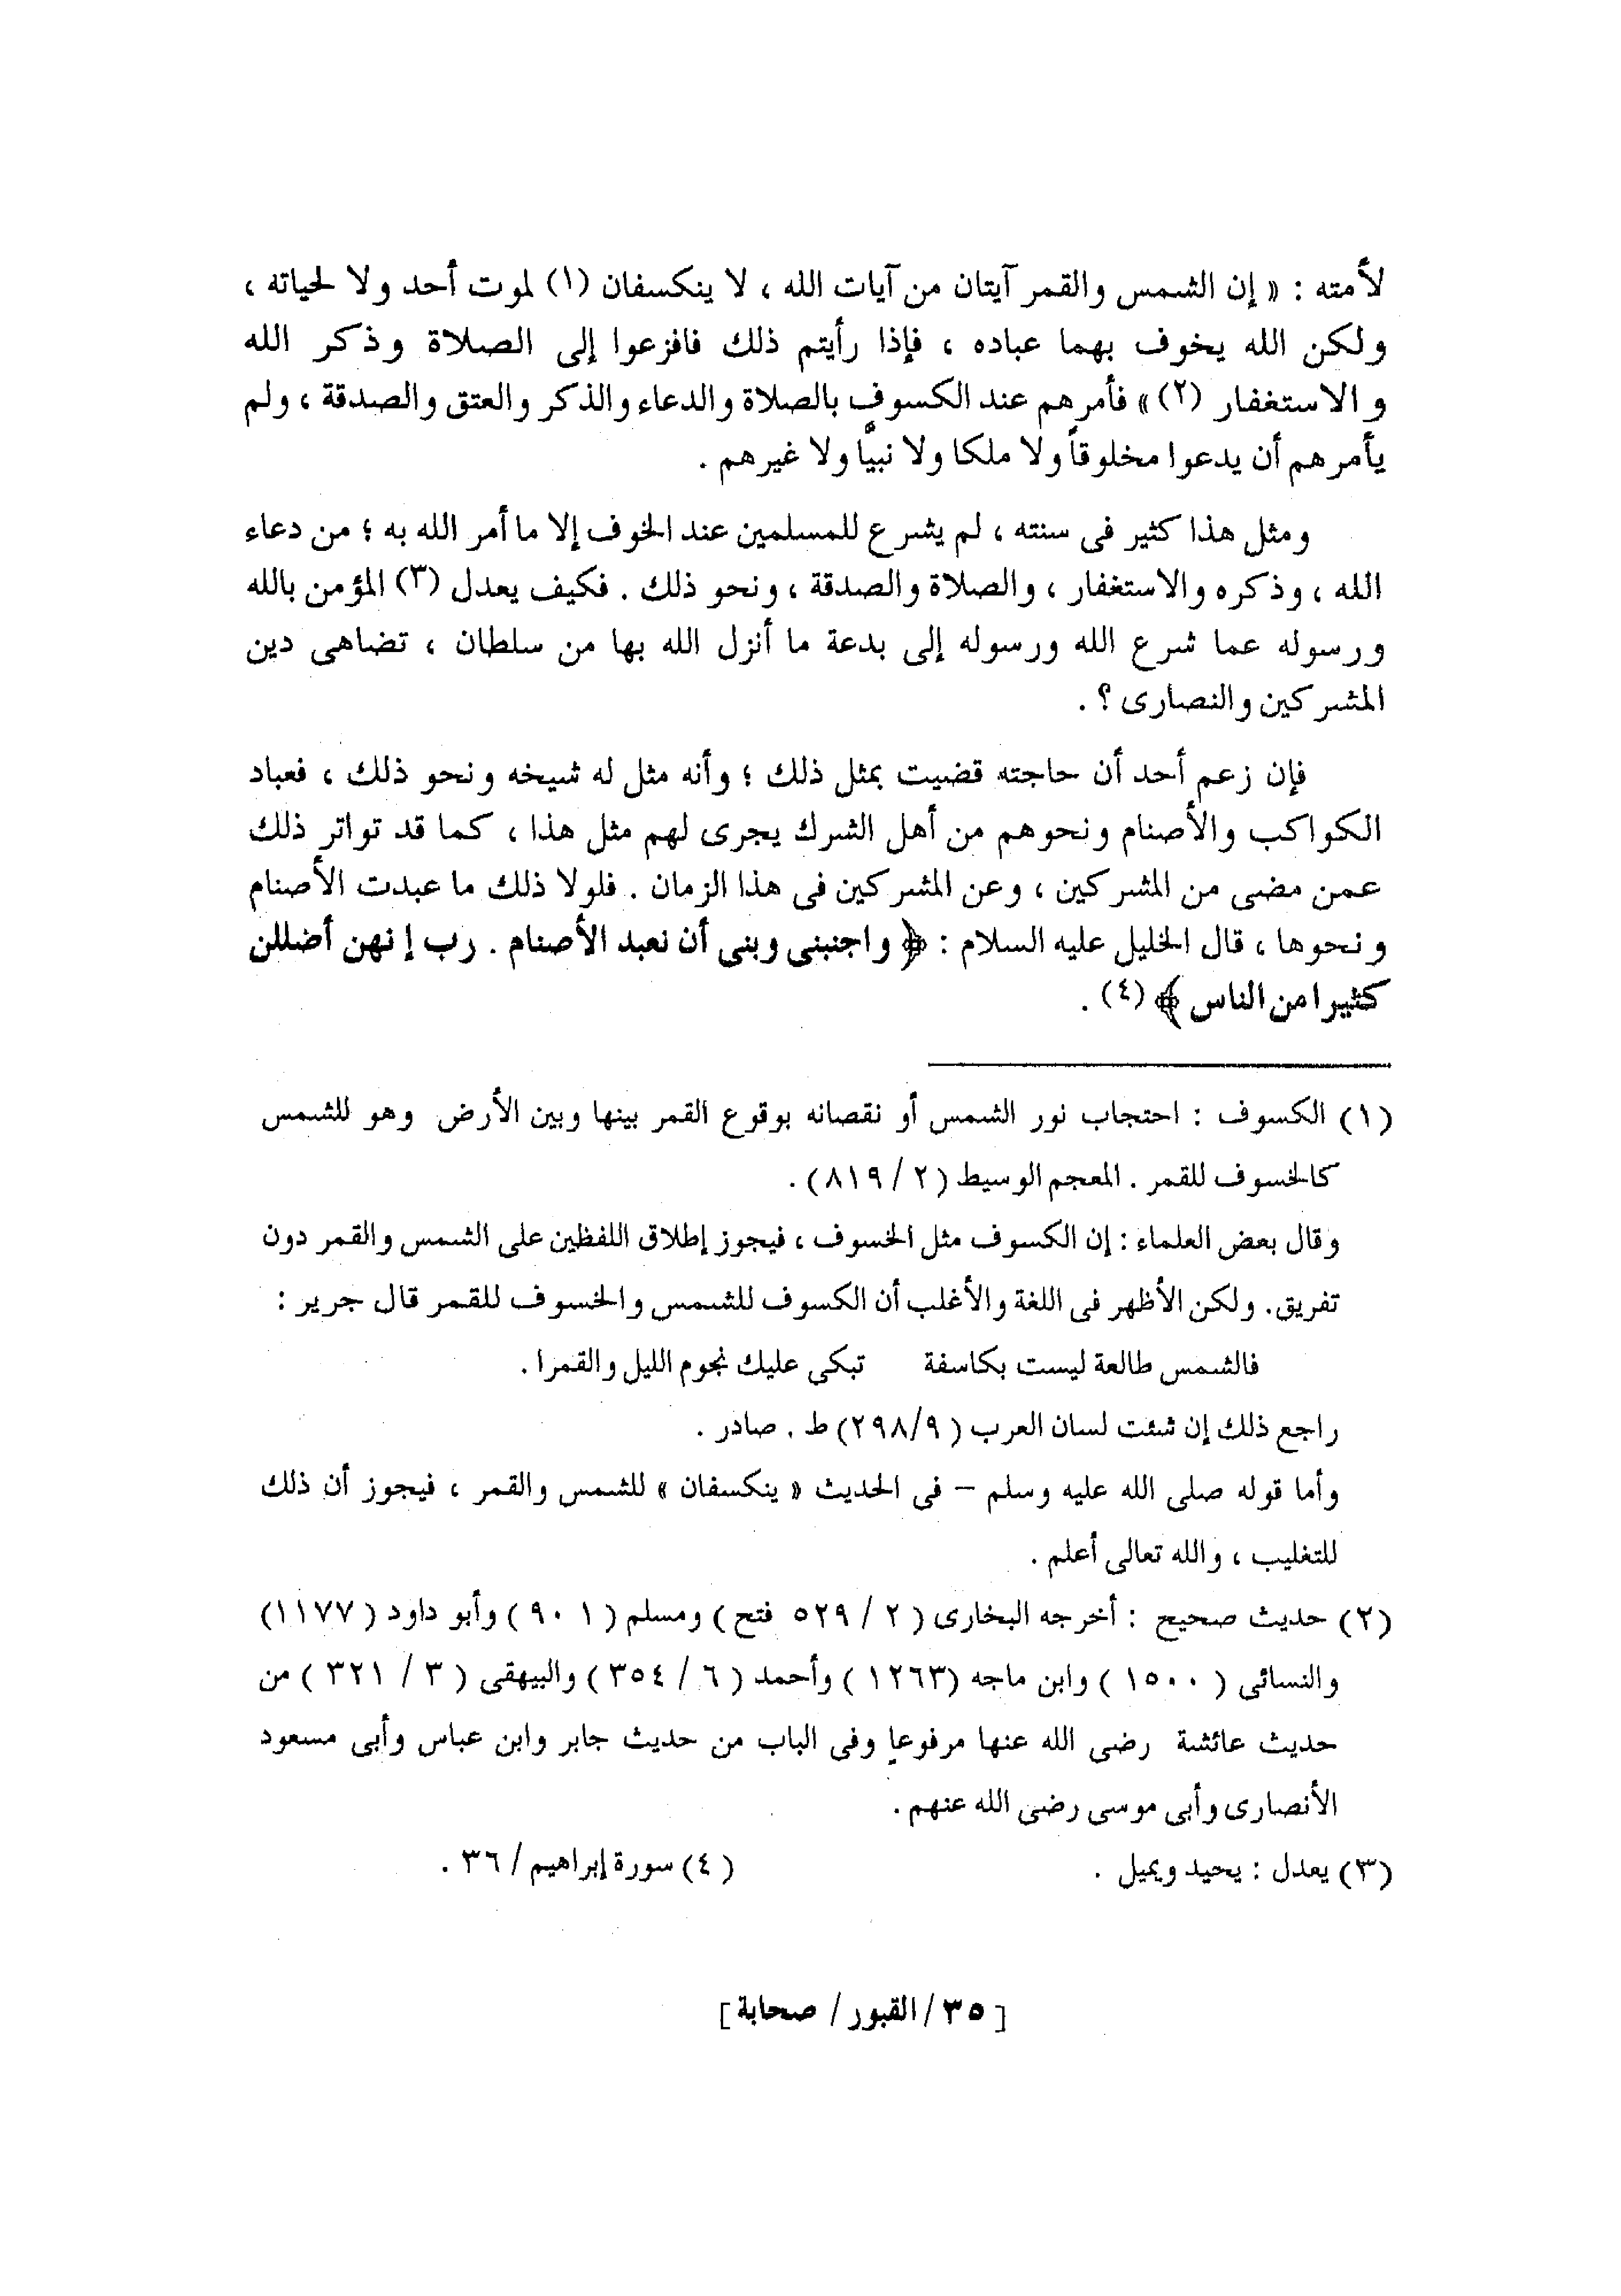 لأمته : « إن الشمس والقمر آيتان من آيات الله ، لا ينكسفان (١) لموت أحد ولا لحياته ،
ولكن الله يخوف بهما عباده ، فإذا رأيتم ذلك فافزعوا إلى الصلاة وذكر الله
والاستغفار (٢) » فأمرهم عند الكسوف بالصلاة والدعاء والذكر والعتق والصدقة ، ولم
يأمرهم أن يدعوا مخلوقاً ولا ملكا ولا نبيًّا ولا غيرهم .
ومثل هذا كثير فى سنته ، لم يشرع للمسلمين عند الخوف إلا ما أمر الله به ؛ من دعاء
الله ، وذكره والاستغفار ، والصلاة والصدقة ، ونحو ذلك . فكيف يعدل (٣) المؤمن بالله
ورسوله عما شرع الله ورسوله إلى بدعة ما أنزل الله بها من سلطان ، تضاهى دين
المشركين والنصارى ؟ .
فإن زعم أحد أن حاجته قضيت بمثل ذلك ؛ وأنه مثل له شيخه ونحو ذلك ، فعباد
الكواكب والأصنام ونحوهم من أهل الشرك يجرى لهم مثل هذا ، كما قد تواتر ذلك
عمن مضى من المشركين ، وعن المشركين فى هذا الزمان . فلولا ذلك ما عبدت الأصنام
ونحوها ، قال الخليل عليه السلام : ﴿ واجنبنى وبنى أن نعبد الأصنام . رب إنهن أضللن
كثيرا من الناس ﴾ (٤) .
(١) الكسوف : احتجاب نور الشمس أو نقصانه بوقوع القمر بينها وبين الأرض وهو للشمس
كالخسوف للقمر . المعجم الوسيط ( ٢ / ٨١٩ ) .
وقال بعض العلماء : إن الكسوف مثل الخسوف ، فيجوز إطلاق اللفظين على الشمس والقمر دون
تفريق. ولكن الأظهر فى اللغة والأغلب أن الكسوف للشمس والخسوف للقمر قال جرير :
فالشمس طالعة ليست بكاسفة تبكى عليك نجوم الليل والقمرا .
راجع ذلك إن شئت لسان العرب ( ٢٩٨/٩ ) ط . صادر .
وأما قوله صلى الله عليه وسلم – فى الحديث « ينكسفان » للشمس والقمر ، فيجوز أن ذلك
للتغليب ، والله تعالى أعلم .
(٢) حديث صحيح : أخرجه البخارى ( ٢ / ٥٢٩ فتح ) ومسلم ( ٩٠١ ) وأبو داود ( ١١٧٧ )
والنسائى ( ١٥٠٠ ) وابن ماجه (١٢٦٣ ) وأحمد ( ٦ / ٣٥٤ ) والبيهقى ( ٣ / ٣٢١ ) من
حديث عائشة رضى الله عنها مرفوعا وفى الباب من حديث جابر وابن عباس وأبى مسعود
الأنصارى وأبى موسى رضى الله عنهم .
(٣) يعدل : يحيد ويميل . (٤) سورة إبراهيم / ٣٦ .
[ ٣٥ / القبور / صحابة ]